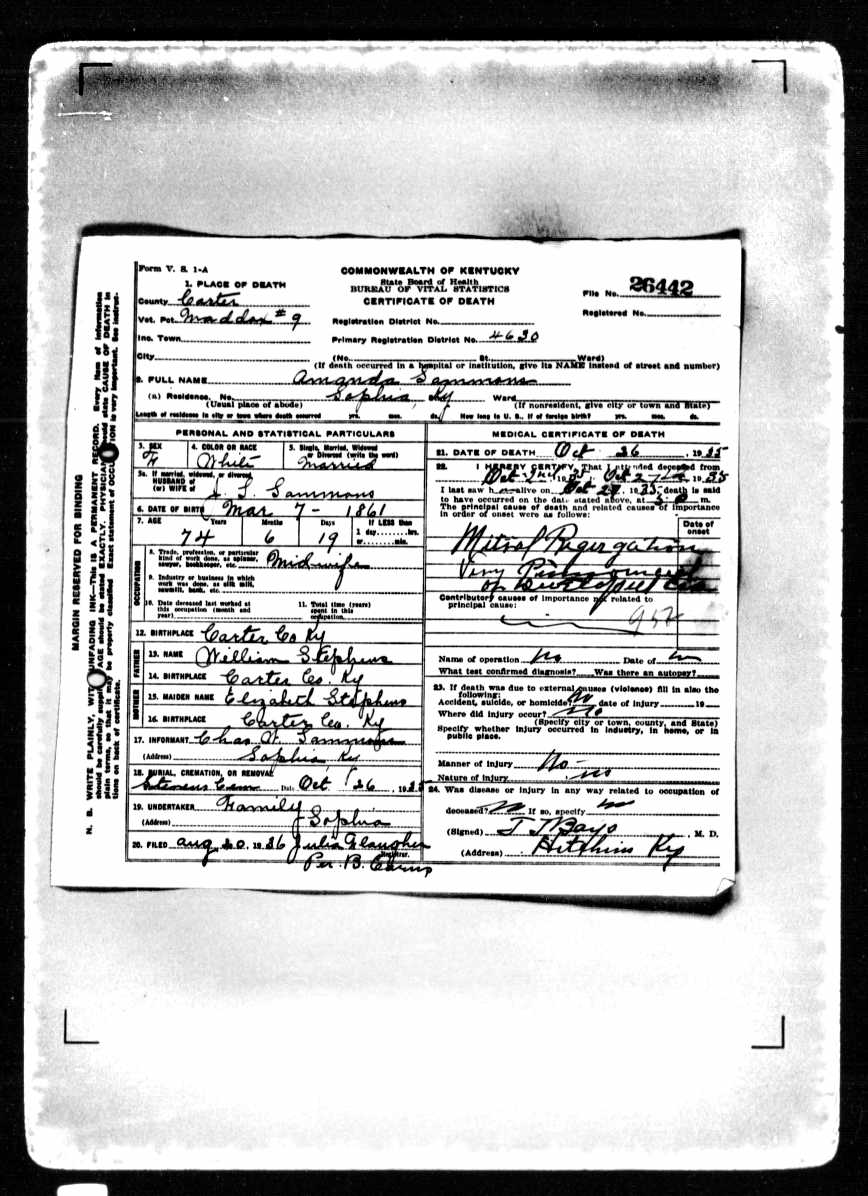 Form V. S. 1-A
COMMONWEALTH OF KENTUCKY
State Board of Health
BUREAU OF VITAL STATISTICS
CERTIFICATE OF DEATH
File No. 26442
Registered No.
1. PLACE OF DEATH
County Carter
Vot. Pct. Maddox #9
Registration District No.
Inc. Town
Primary Registration District No. 4630
City (No. St. Ward)
(If death occurred in a hospital or institution, give its NAME instead of street and number)
2. FULL NAME Amanda Sammons
(a) Residence. No. Sophia, Ky Ward
(Usual place of abode) (If nonresident, give city or town and State)
Length of residence in city or town where death occurred yrs. mos. ds. How long in U. S., if of foreign birth? yrs. mos. ds.
PERSONAL AND STATISTICAL PARTICULARS
3. SEX 4. COLOR OR RACE 5. Single, Married, Widowed
or Divorced (write the word)
F White Married
5a. If married, widowed, or divorced
HUSBAND of
(or) WIFE of J. Sammons
6. DATE OF BIRTH Mar 7 - 1861
7. AGE Years Months Days If LESS than
1 day hrs.
or min.
74 6 19
OCCUPATION
8. Trade, profession, or particular
kind of work done, as spinner,
sawyer, bookkeeper, etc. Midwife
9. Industry or business in which
work was done, as silk mill,
sawmill, bank, etc.
10. Date deceased last worked at
this occupation (month and
year)
11. Total time (years)
spent in this
occupation
12. BIRTHPLACE Carter Co Ky
FATHER
13. NAME William Stephens
14. BIRTHPLACE Carter Co. Ky
MOTHER
15. MAIDEN NAME Elizabeth Stephens
16. BIRTHPLACE Carter Co. Ky
17. INFORMANT Chas W. Sammons
(Address) Sophia Ky
18. BURIAL, CREMATION, OR REMOVAL
Stevens Cem Date Oct. 26, 1935
19. UNDERTAKER Family
(Address) Sophia
20. FILED Aug 20, 1936 Julia
Registrar.
Per. B.
MEDICAL CERTIFICATE OF DEATH
21. DATE OF DEATH Oct 26, 1935
22. I HEREBY CERTIFY, That I attended deceased from
Oct 2nd, 1935, Oct 27th, 1935
I last saw her alive on Oct, 1935, death is said
to have occurred on the date stated above, at m.
The principal cause of death and related causes of importance
in order of onset were as follows:
Date of
onset
Mitral Regergation
Very Pronounced
Contributory causes of importance not related to
principal cause:
Name of operation No Date of
What test confirmed diagnosis? Was there an autopsy?
23. If death was due to external causes (violence) fill in also the
following:
Accident, suicide, or homicide? No date of injury 19
Where did injury occur? No
(Specify city or town, county, and State)
Specify whether injury occurred in industry, in home, or in
public place.
Manner of injury No
Nature of injury no
24. Was disease or injury in any way related to occupation of
deceased? No If so, specify
(Signed) J J Bays, M. D.
(Address) Hitchins Ky
MARGIN RESERVED FOR BINDING
N. B. WRITE PLAINLY, WITH UNFADING INK—THIS IS A PERMANENT RECORD. Every item of information
should be carefully supplied. AGE should be stated EXACTLY. PHYSICIANS should state CAUSE OF DEATH in
plain terms, so that it may be properly classified. Exact statement of OCCUPATION is very important. See instruc-
tions on back of certificate.